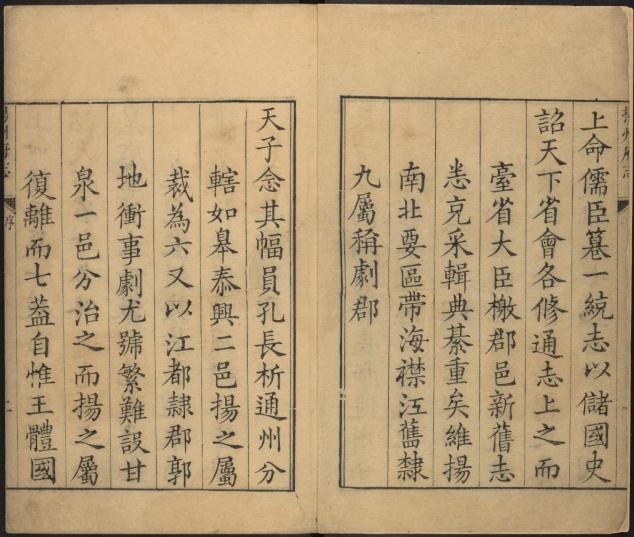 上命儒臣篹一統志以儲國史
詔天下省會各修通志上之而
臺省大臣檄郡邑新舊志
悉克采輯典綦重矣維揚
南北要區帶海襟江舊隸
九屬稱劇郡
天子念其幅員孔長析通州分
轄如皋泰興二邑揚之屬
裁為六又以江都隸郡郭
地衝事劇尤號繁難設甘
泉一邑分治之而揚之屬
復離而七葢自惟王體國
揚州府志
序